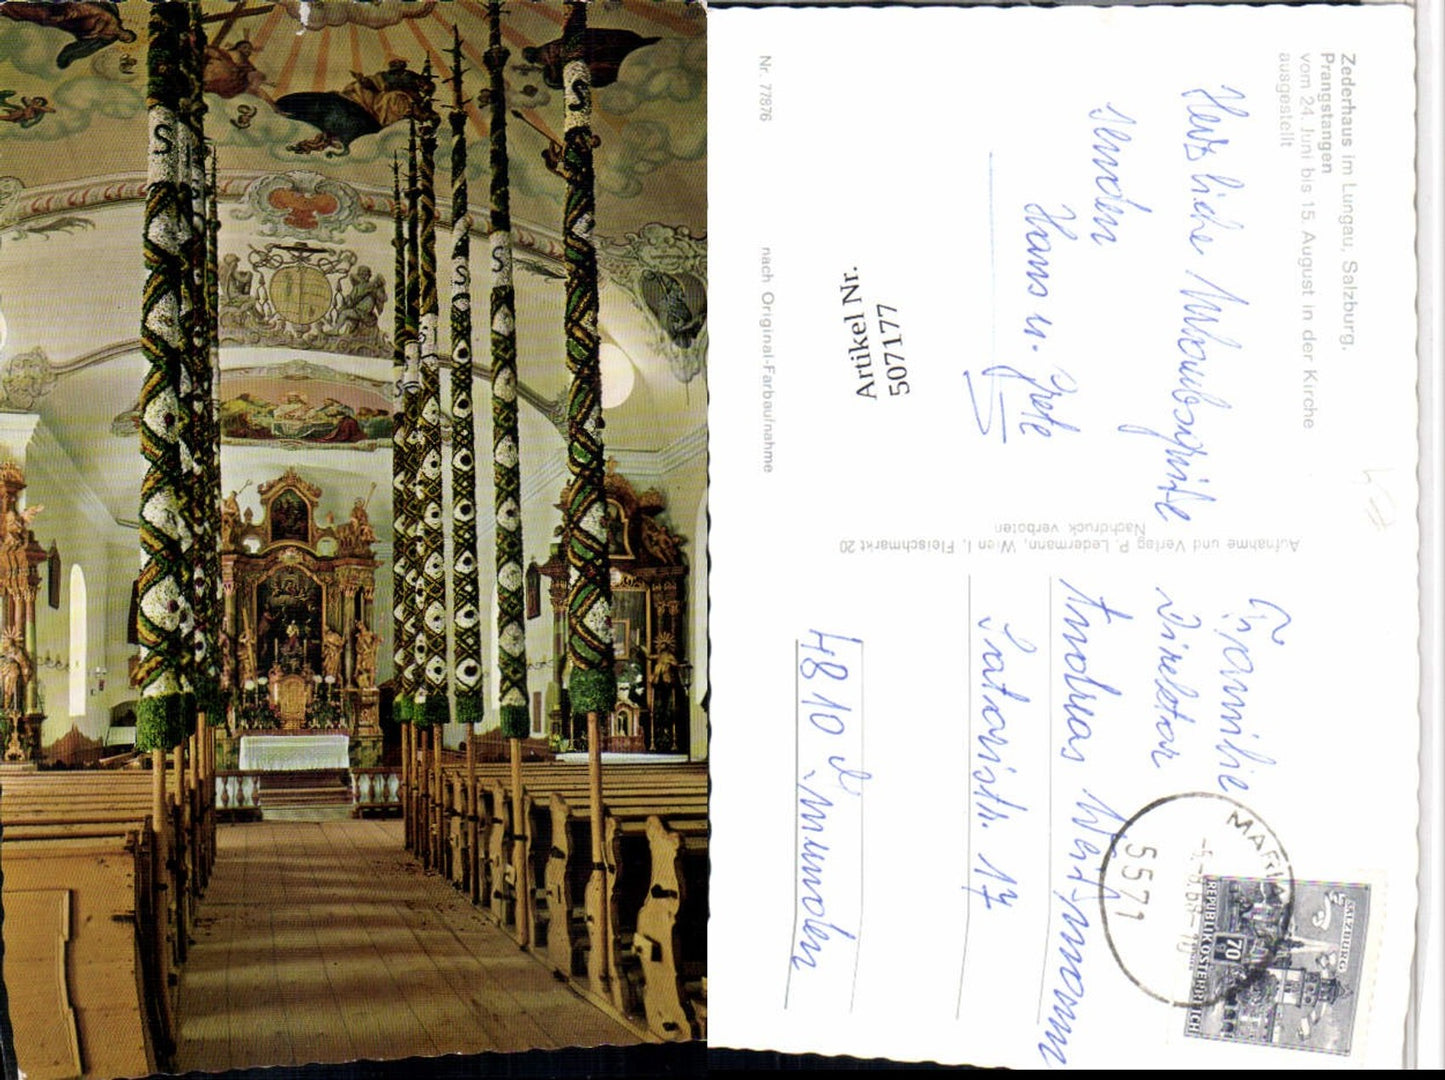 Zederhaus im Lungau, Salzburg.
Prangstangen
vom 24. Juni bis 15. August in der Kirche
ausgestellt
Herzliche Urlaubsgrüße
senden
Hans u. Grete
Artikel Nr.
507177
Nr. 77876
nach Original-Farbaufnahme
Aufnahme und Verlag P. Ledermann, Wien I, Fleischmarkt 20
Nachdruck verboten
Familie
Direktor
Andreas
Satoristr. 17
4810 Gmunden
MARIA
5571
SALZBURG
70
REPUBLIK ÖSTERREICH
S
S
S
S